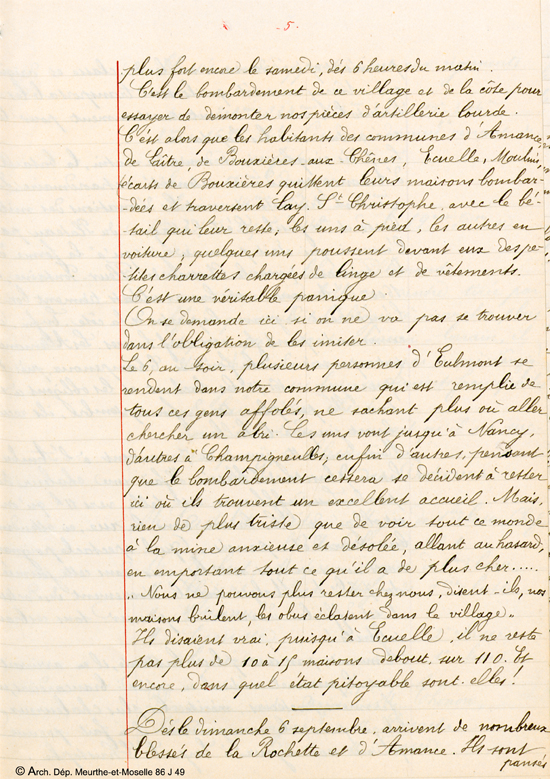 - 5 -
plus fort encore le samedi, dès 6 heures du matin.
C'est le bombardement de ce village et de la côte pour
essayer de démonter nos pièces d'artillerie lourde.
C'est alors que les habitants des communes d'Amance,
de Laître, de Bouxières-aux-Chênes, Ecuelle, Moulins,
écarts de Bouxières quittent leurs maisons bombar-
-dées et traversent Lay-St-Christophe, avec le bé-
-tail qui leur reste, les uns à pied, les autres en
voiture, quelques uns poussent devant eux des pe-
-tites charrettes chargées de linge et de vêtements.
C'est une véritable panique.
On se demande ici si on ne va pas se trouver
dans l'obligation de les imiter.
Le 6, au soir, plusieurs personnes d'Eulmont se
rendent dans notre commune qui est remplie de
tous ces gens affolés, ne sachant plus où aller
chercher un abri. Les uns vont jusqu'à Nancy,
d'autres à Champigneulles, enfin d'autres, pensant
que le bombardement cessera se décident à rester
ici où ils trouvent un excellent accueil. Mais,
rien de plus triste que de voir tout ce monde
à la mine anxieuse et désolée, allant au hasard,
en emportant tout ce qu'il a de plus cher.....
"Nous ne pouvons plus rester chez nous, disent-ils, nos
maisons brûlent, les obus éclatent dans le village"
Ils disaient vrai, puisqu'à Ecuelle, il ne reste
pas plus de 10 à 15 maisons debout, sur 110. Et
encore, dans quel état pitoyable sont-elles!
Dès le dimanche 6 septembre, arrivent de nombreux
blessés de la Rochette et d'Amance. Ils sont
pansés
© Arch. Dép. Meurthe-et-Moselle 86 J 49